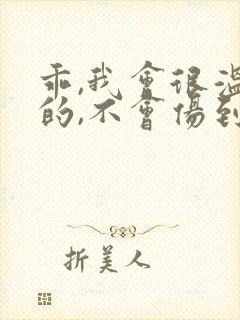 乖,我會很溫
的,不會傷到
折美人